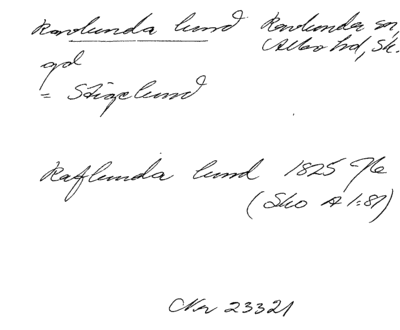 Ravlunda lund Ravlunda sn,
Albo hd, Sk.
gd
= Stigelund
Raflunda lund 1825
(Sko A 1:87)
Nr 23321